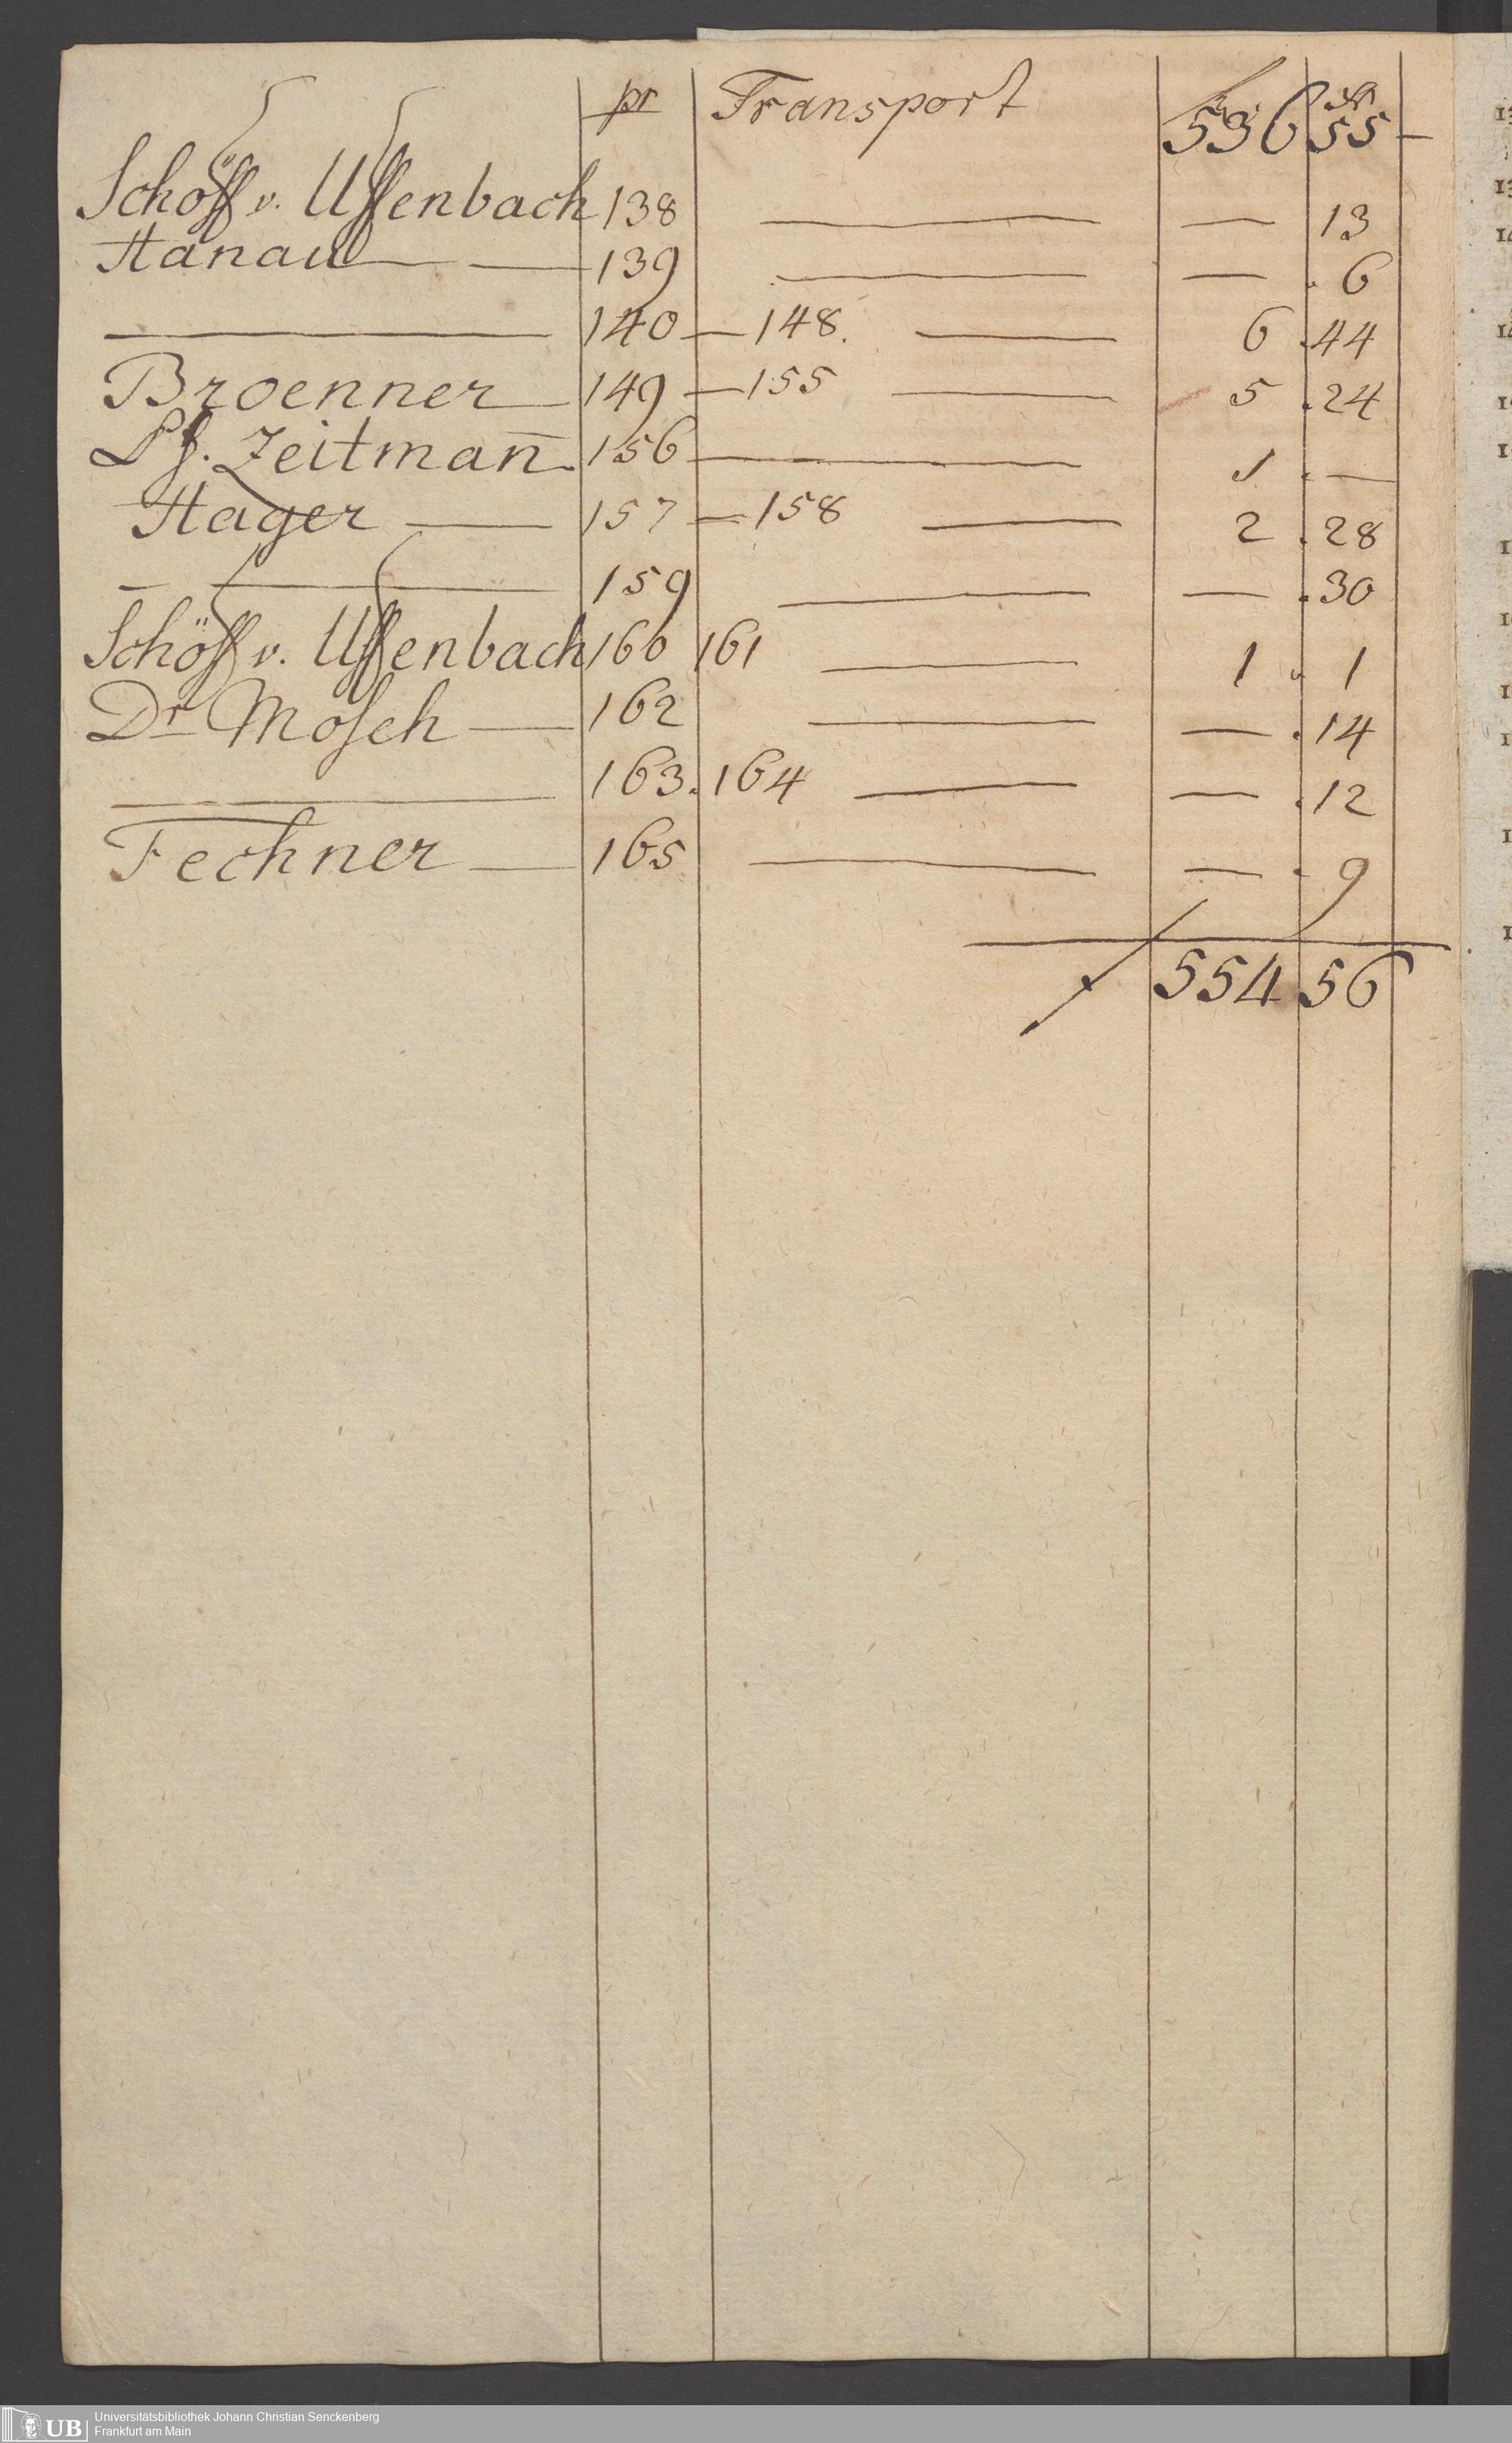 pr Transport f xr
536 55 —
Schöff v. Uffenbach 138 — — 13
Hanau — 139 — — . 6
— 140 — 148. — 6 . 44
Broenner — 149 — 155 — 5 . 24
Pf. Zeitman̄ 156 — 1 . —
Hager — 157 — 158 — 2 . 28
— — 159 — — . 30
Schöff v. Uffenbach 160 161 — 1 . 1
Dr Mosch — 162 — — . 14
— 163. 164 — — . 12
Fechner — 165 — — . 9
554 56
UB Universitätsbibliothek Johann Christian Senckenberg
Frankfurt am Main